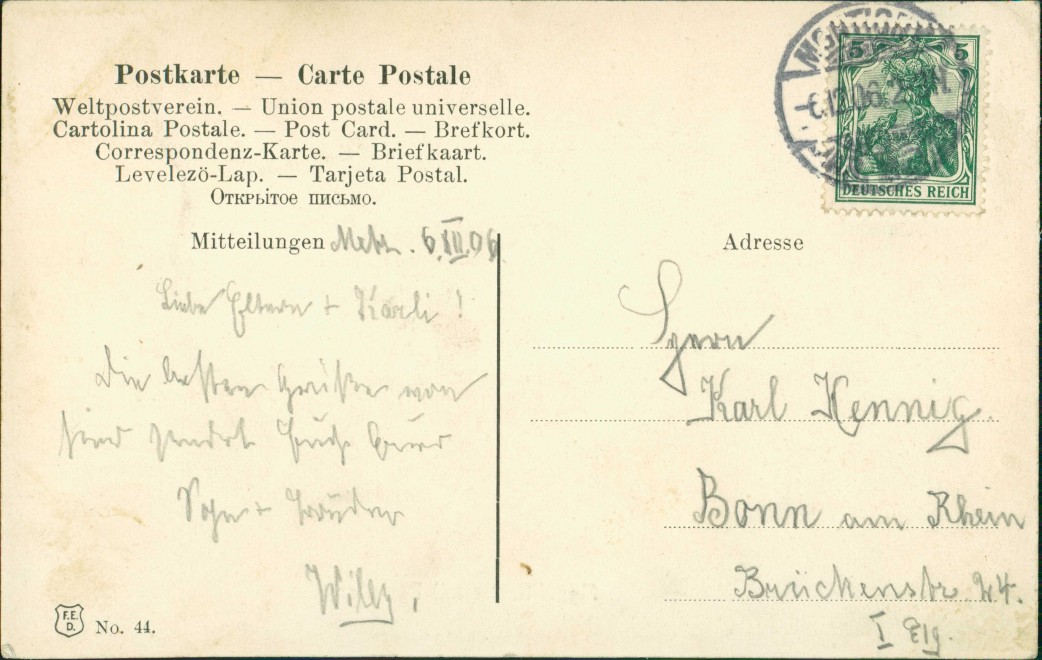 Postkarte — Carte Postale
Weltpostverein. — Union postale universelle.
Cartolina Postale. — Post Card. — Brefkort.
Correspondenz-Karte. — Briefkaart.
Levelezö-Lap. — Tarjeta Postal.
Открьітое письмо.
Mitteilungen Metz. 6.XII.06
Liebe Eltern + Karli!
Die besten Grüße von
hier sendet Euch Euer
Sohn + Bruder
Willy.
F.E.
D.
No. 44.
5 5
6.12.06. 2
DEUTSCHES REICH
Adresse
Herrn
Karl Hennig.
Bonn am Rhein
Brückenstr 24.
I Etg.